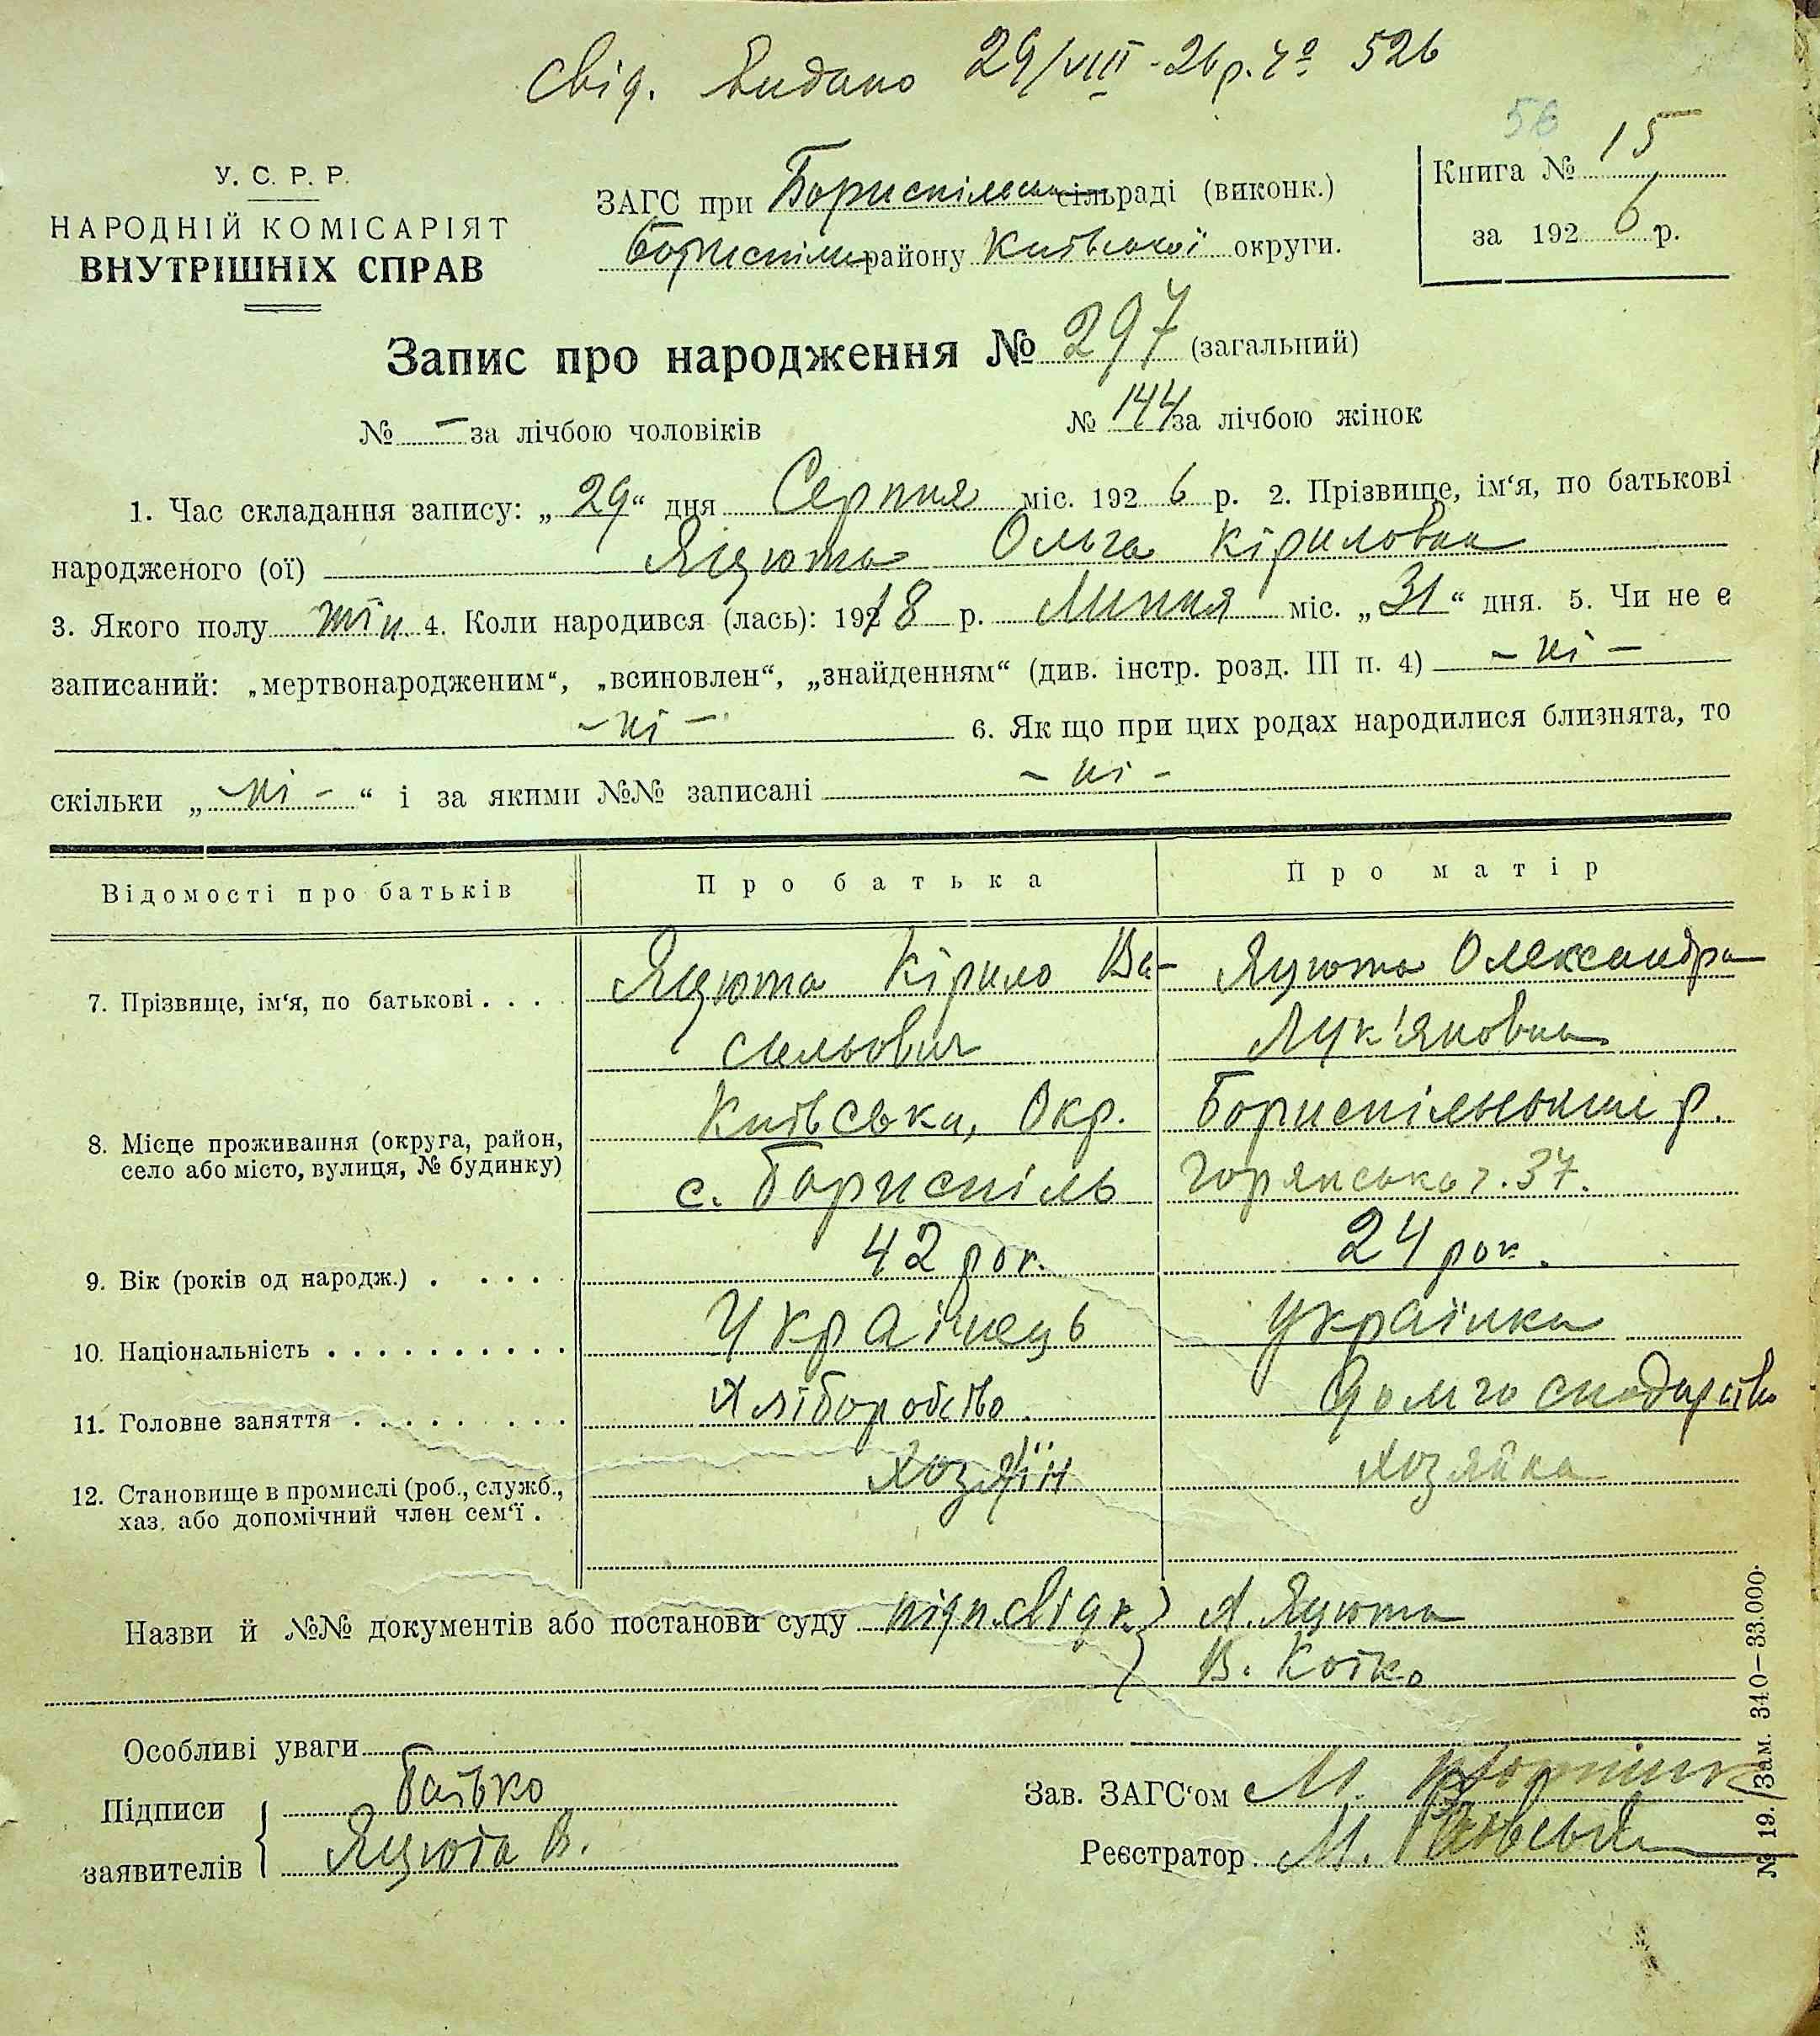 Свід. видано 29/VIII-26 р. № 526
56
У. С. Р. Р.
НАРОДНІЙ КОМІСАРІЯТ
ВНУТРІШНІХ СПРАВ
ЗАГС при Бориспільськ сільраді (виконк.)
Бориспільс району Київської округи.
Книга № 15
за 1926 р.
Запис про народження № 297 (загальний)
№ — за лічбою чоловіків № 144 за лічбою жінок
1. Час складання запису: „29“ дня Серпня міс. 1926 р. 2. Прізвище, ім‘я, по батькові
народженого (ої) Яцюта Ольга Кіриловна
3. Якого полу жін. 4. Коли народився (лась): 1918 р. Липня міс. „31“ дня. 5. Чи не є
записаний: „мертвонародженим“, „всиновлен“, „знайденням“ (див. інстр. розд. III п. 4) – ні –
– ні – 6. Як що при цих родах народилися близнята, то
скільки „– ні –“ і за якими №№ записані – ні –
Відомості про батьків Про батька Про матір
7. Прізвище, ім‘я, по батькові . . . Яцюта Кірило Ва- Яцюта Олександра
сильович Лук'яновна
8. Місце проживання (округа, район, Київська, Окр. Бориспільський р.
село або місто, вулиця, № будинку) с. Бориспіль Горянська ч. 37.
9. Вік (років од народж.) . . . . 42 рок. 24 рок.
10. Національність . . . . . . . . . . Українець Українка
11. Головне заняття . . . . . . . . Хліборобство. Домгосподарство
12. Становище в промислі (роб., служб., Хозяїн Хозяйка
хаз. або допомічний член сем‘ї .
Назви й №№ документів або постанови суду підп. свідк. } А. Яцюта
В. Койко
Особливі уваги
Підписи Бойко
заявителів Яцюта В.
Зав. ЗАГС‘ом М.
Реєстратор М.
№ 19. Зам. 340–33.000.